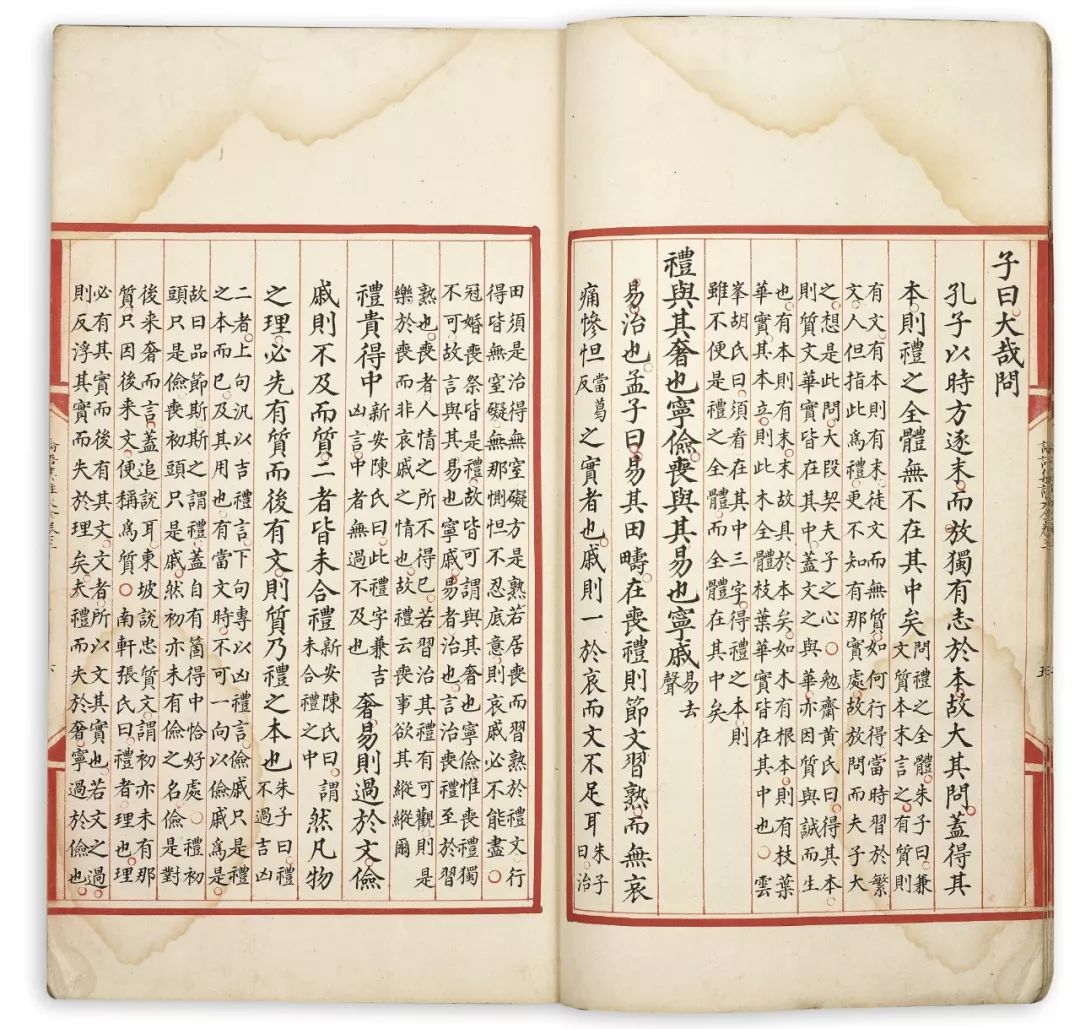 子曰大哉問
孔子以時方逐末而放獨有志於本故大其問蓋得其
本則禮之全體無不在其中矣
問禮之全體朱子曰兼
文質本末言之有質則
有文有本則有末徒文而無質如何行得當時習於繁
文人但指此爲禮更不知有那實處故放問而夫子大
之想是此問大段契夫子之心○勉齋黃氏曰得其本
則質文華實皆在其中蓋文之與華亦因質與誠而生
也有本則有末末故具於本矣如木有根本則有枝葉
華實其本立則此木全體枝葉華實皆在其中也○雲
峯胡氏曰須看在其中三字得禮之本則
雖不便是禮之全體而全體在其中矣
禮與其奢也寧儉喪與其易也寧戚
易去
聲
易治也孟子曰易其田疇在喪禮則節文習熟而無哀
痛慘怛
當葛
反
之實者也戚則一於哀而文不足耳
朱子
曰治
田須是治得無窒礙方是熟若居喪而習熟於禮文行
得皆無窒礙無那惻怛不忍底意則哀戚必不能盡○
冠婚喪祭皆是禮故皆可謂與其奢也寧儉惟喪禮獨
不可故言與其易也寧戚易者治也言治喪禮至於習
熟也喪者人情之所不得已若習治其禮有可觀則是
樂於喪而非哀戚之情也故禮云喪事欲其縱縱爾
禮貴得中
新安陳氏曰此禮字兼吉
凶言中者無過不及也
奢易則過於文儉
戚則不及而質二者皆未合禮
新安陳氏曰謂
未合禮之中
然凡物
之理必先有質而後有文則質乃禮之本也
朱子曰禮
不過吉凶
二者上句汎以吉禮言下句專以凶禮言儉戚只是禮
之本而已及其用也有當文時不可一向以儉戚爲是
故曰品節斯斯之謂禮蓋自有箇得中恰好處○禮初
頭只是儉喪初頭只是戚然初亦未有儉之名儉是對
後来奢而言蓋追說耳東坡說忠質文謂初亦未有那
質只因後来文便稱爲質○南軒張氏曰禮者理也理
必有其實而後有其文文者所以文其實也若文之過
則反浮其實而失於理矣夫禮而失於奢寧過於儉也